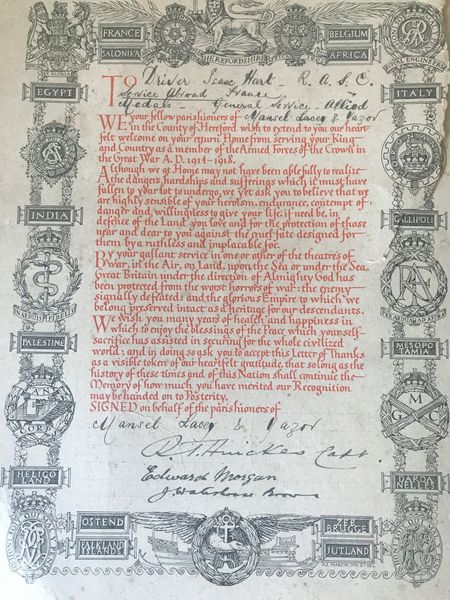 FRANCE
BELGIUM
SALONIKA
HEREFORDSHIRE
AFRICA
ROYAL ENGINEERS
EGYPT
ITALY
INDIA
GALLIPOLI
PALESTINE
MESOPO
TAMIA
HELIGO
LAND
DARDA
NELLES
TO Driver Isaac Hart R.A.S.C.
Service Abroad France
Medals - General Service - Allied
WE your fellow parishioners of Mansel Lacey & Yazor
in the County of Hereford wish to extend to you our heart
felt welcome on your return Home from serving your King
and Country as a member of the Armed Forces of the Crown in
the Great War A.D. 1914-1918.
Although we at Home may not have been able fully to realize
the dangers, hardships and sufferings which it must have
fallen to your lot to undergo, we yet ask you to believe that we
are highly sensible of your heroism, endurance, contempt of
danger and willingness to give your life, if need be, in
defence of the Land you love and for the protection of those
near and dear to you against the cruel fate designed for
them by a ruthless and implacable foe.
By your gallant service in one or other of the theatres of
war, in the Air, on Land, upon the Sea or under the Sea,
Great Britain under the direction of Almighty God has
been protected from the worst horrors of war: the enemy
signally defeated: and the glorious Empire to which we
belong preserved intact as a heritage for our descendants.
We wish you many years of health and happiness in
which to enjoy the blessings of the Peace which your self-
sacrifice has assisted in securing for the whole civilized
world; and in doing so ask you to accept this Letter of Thanks
as a visible token of our heartfelt gratitude, that so long as the
history of these times and of this Nation shall continue the
Memory of how much you have merited our Recognition
may be handed on to Posterity.
SIGNED on behalf of the parishioners of
Mansel Lacey & Yazor
Capt.
Edward Morgan
OSTEND
ZEE
BRUGGE
FALKLAND
ISLANDS
JUTLAND